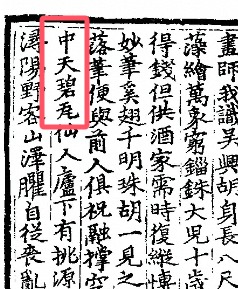 畫師我識吳興胡身長八尺
藻繪萬象窮錙銖大兒十歲
得錢但供酒家需時復縱
妙筆奚翅千明珠胡一見之
落筆便與前人俱祝融撐空
中天碧瓦仙人廬下有桃源
潯陽野客山澤臞自從喪亂